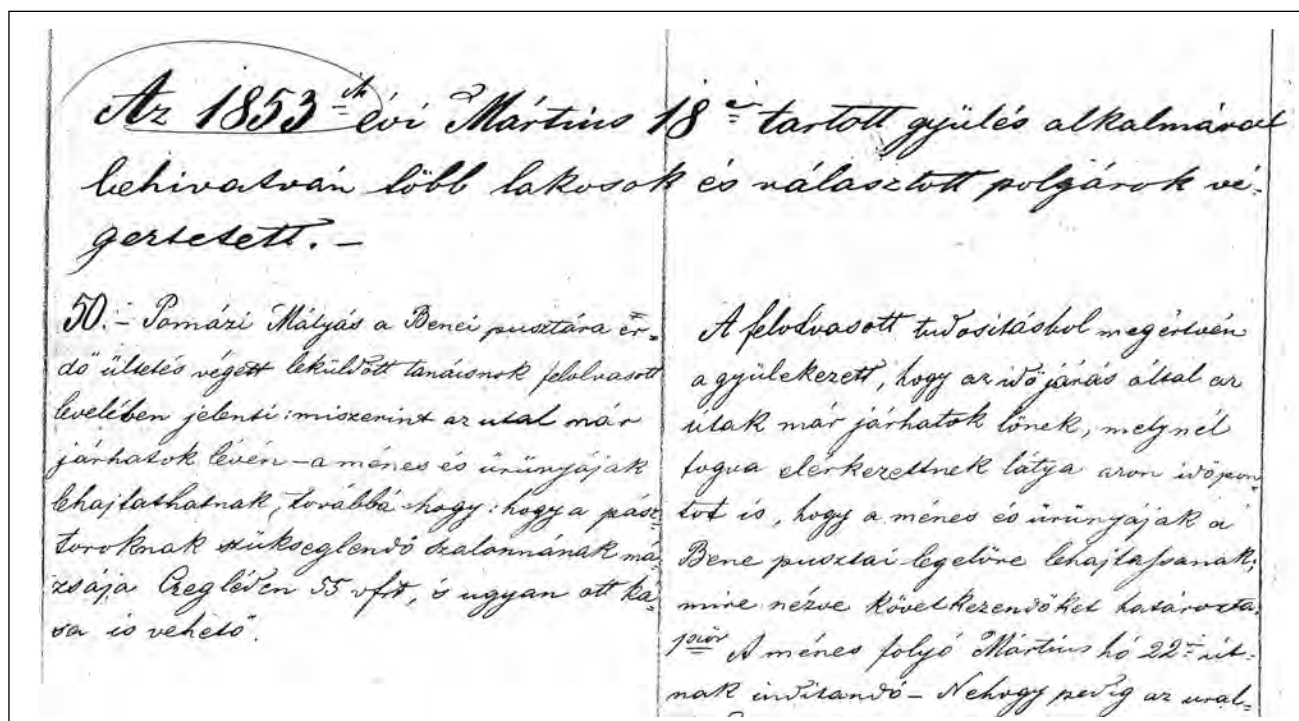 Az 1853ik évi Mártius 18i tartott gyülés alkalmával
behivatván több lakosok és választott polgárok vé-
geztetett. –
50. – Pomázi Mátyás a Benei pusztára er-
dő ültetés végett leküldött tanácsnok felolvasott
levelében jelenti: miszerint az utal már
járhatok lévén – a ménes és ürünyájak
lehajtathatnak, továbbá hogy: hogy a pász-
toroknak szükséglendő szalonnának má-
zsája Czegléden 55 vft, és ugyan ott ká-
sa is vehető.
A felolvasott tudositásbol megértvén
a gyülekezett, hogy az idő járás által az
útak már járhatok lőnek, melynél
fogva elérkezettnek látya azon időpon-
tot is, hogy a ménes és ürünyájak a
Bene pusztai legelőre lehajtassanak;
mire nézve következendőket határozta.
1ször A ménes folyó Mártius hó 22i út-
nak inditandó – Nehogy pedig az ural-